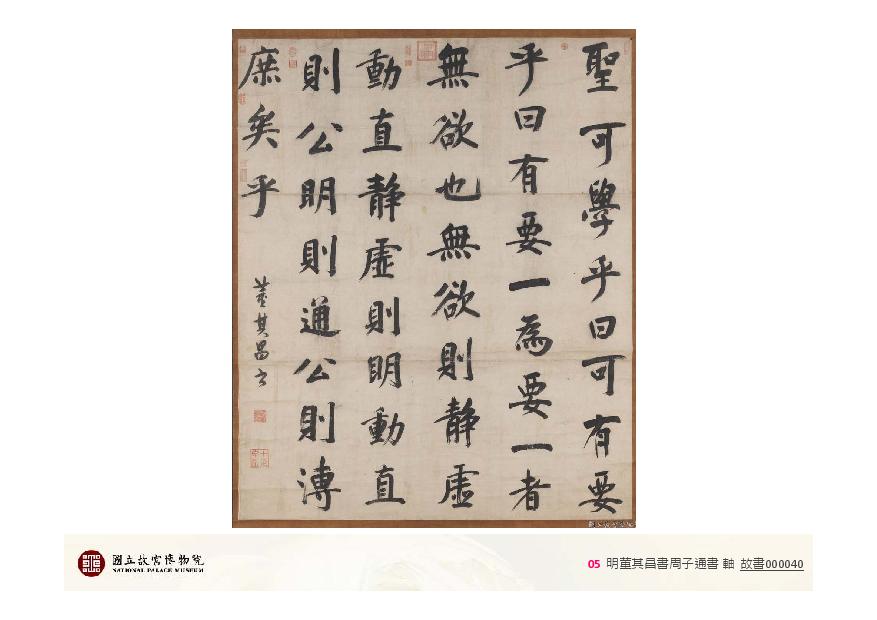 聖可學乎曰可有要
乎曰有要一為要一者
無欲也無欲則静虛
動直静虛則明動直
則公明則通公則溥
庶矣乎
董其昌書
國立故宮博物院
NATIONAL PALACE MUSEUM
05 明董其昌書周子通書 軸 故書000040